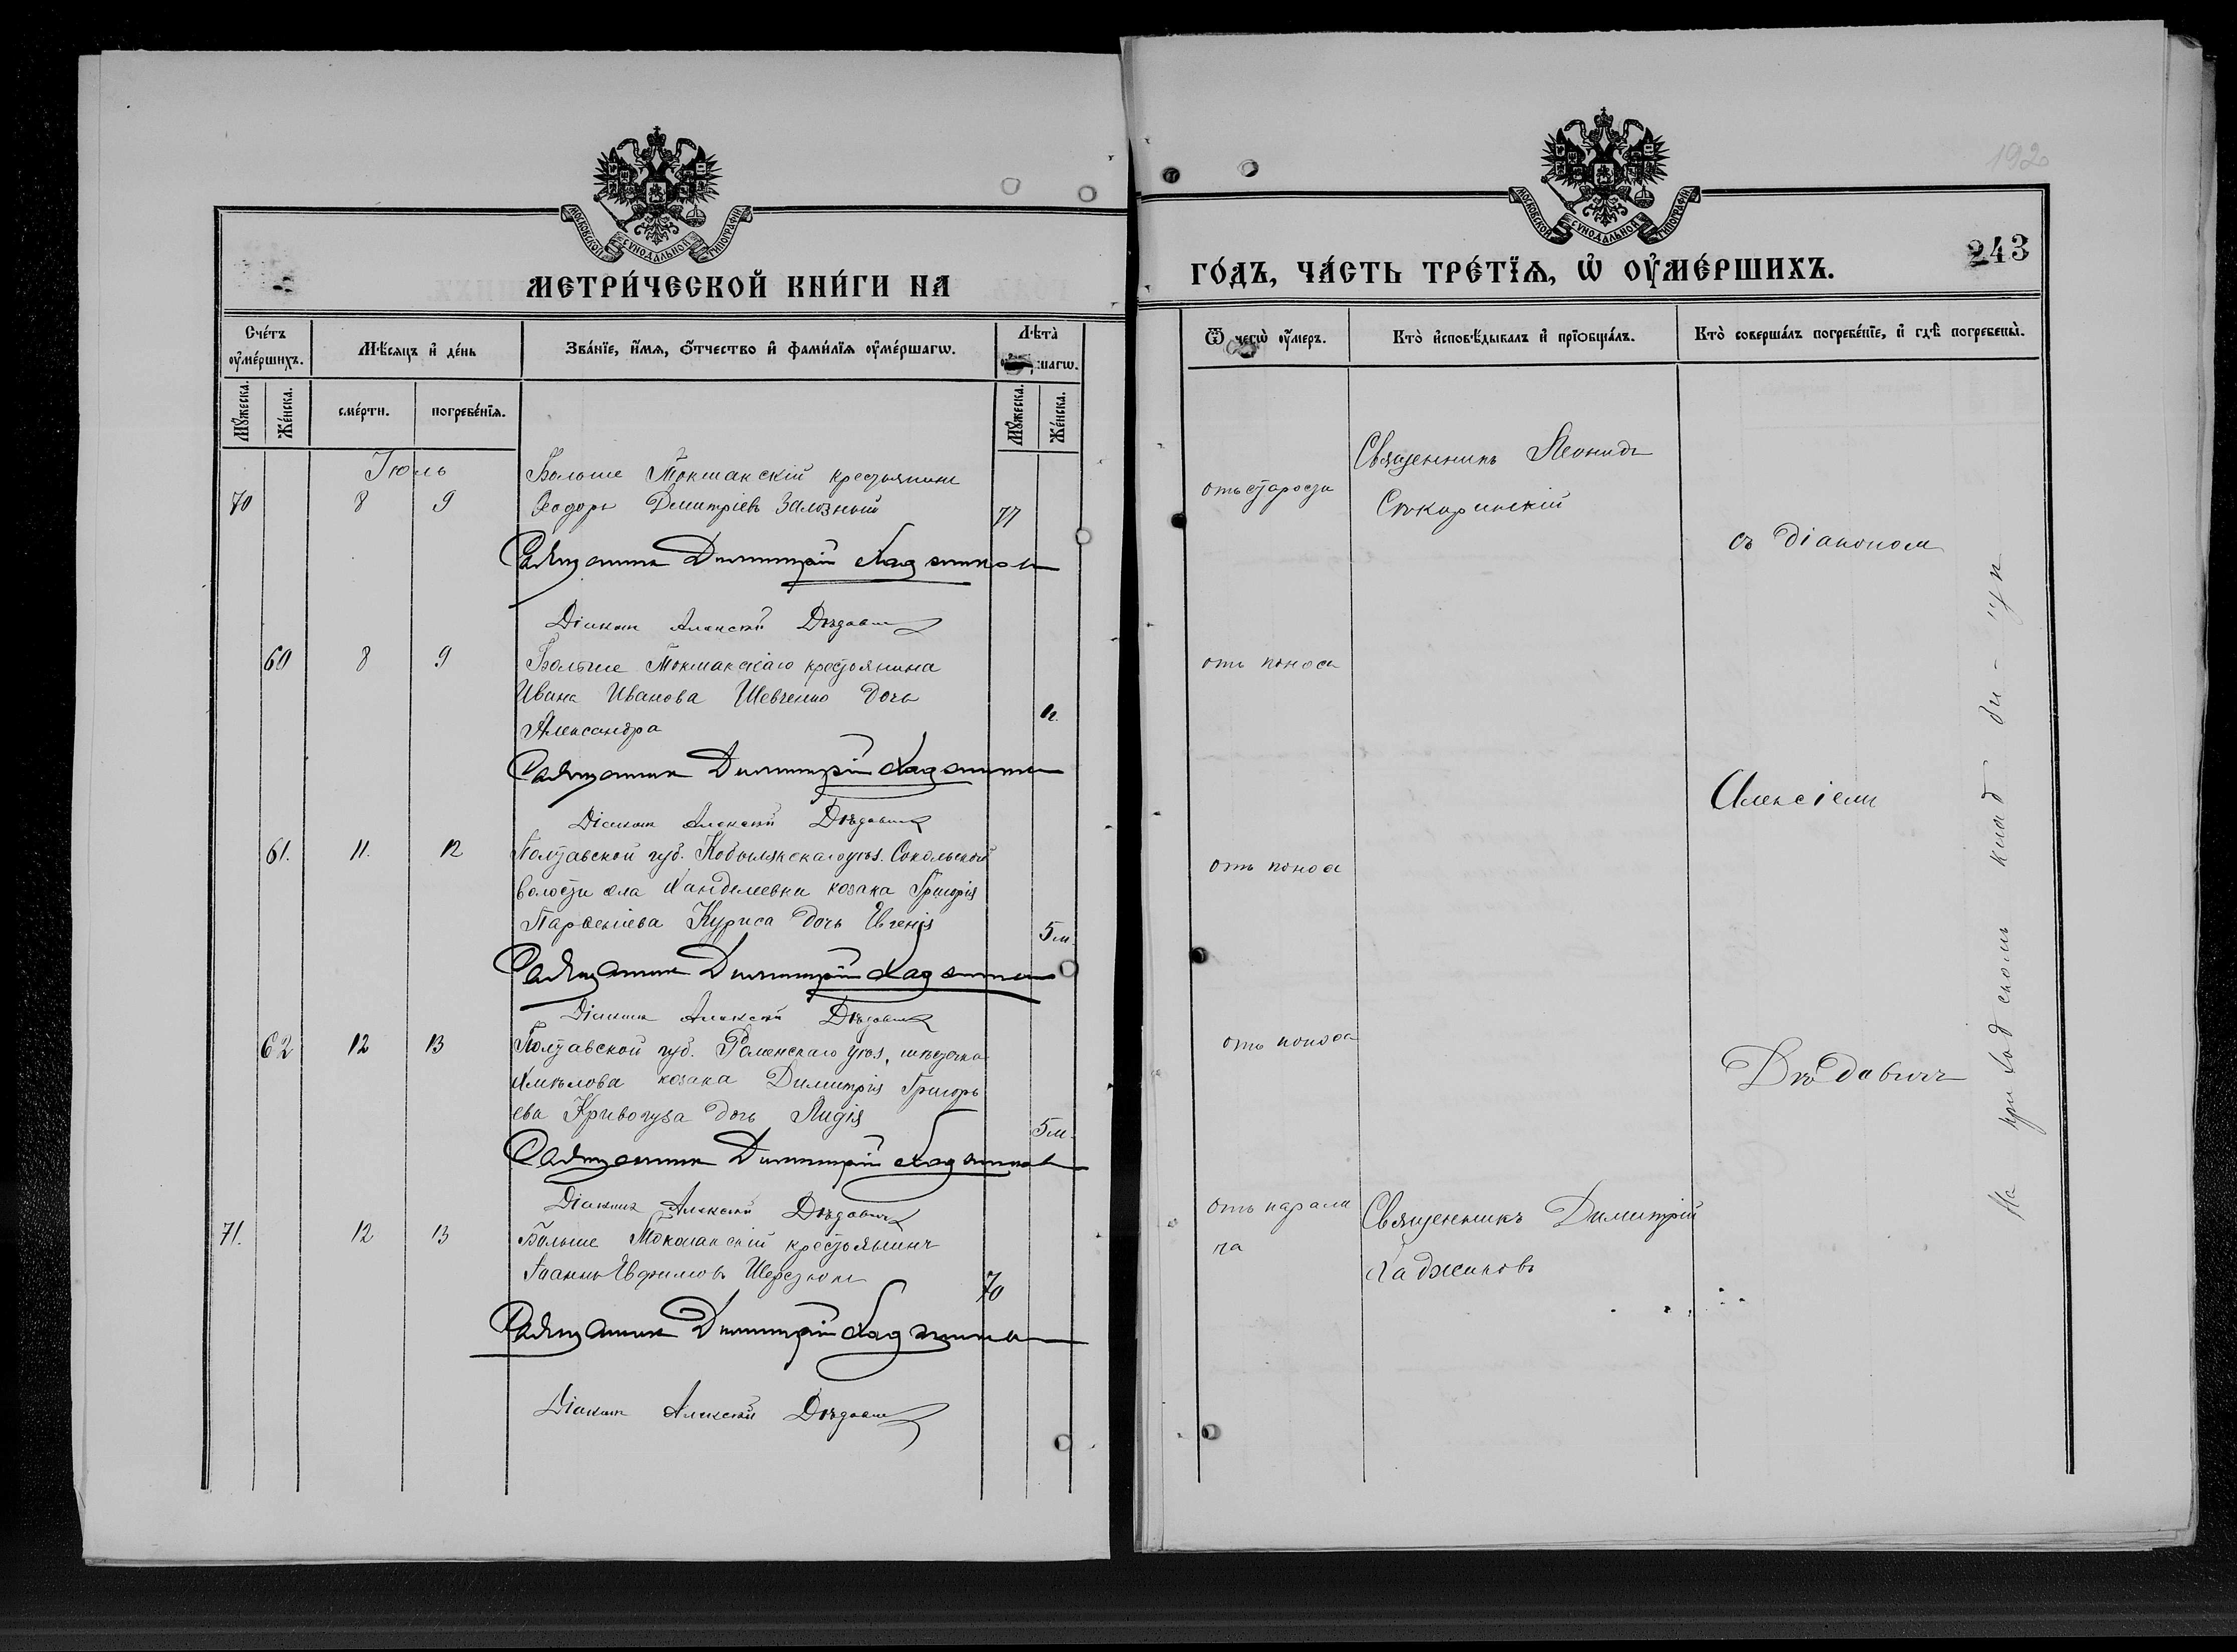 МОСКОВСКОЙ СУНОДАЛЬНОЙ ТИПОГРАФІИ
МЕТРИ́ЧЕСКОЙ КНИ́ГИ НА
Сче́тъ ᲂу҆ме́ршихъ.
Мѣ́сяцъ и҆ де́нь
Зва́нїе, и҆́мя, ѻ҆́тчество и҆ фами́лїя ᲂу҆ме́ршагѡ.
Лѣ́та
шагѡ.
Мꙋ́жеска.
Же́нска.
сме́рти.
погребе́нїя.
Мꙋ́жеска.
Же́нска.
Іюль
Больше Токмакскій крестьянинъ
70 8 9 Ѳеодоръ Дмитріевъ Залозный 77
Священникъ Димитрій Хаджиновъ
Діаконъ Алексѣй Дѣдовичъ
60 8 9 Больше Токмакскаго крестьянина
Ивана Иванова Шевченко дочь
Александра
Священникъ Димитрій Хаджиновъ
Діаконъ Алексѣй Дѣдовичъ
61. 11. 12 Полтавской губ. Кобылякскаго уѣз. Сокольской
волости села Ханделеевки козака Григорія
Парѳеніева Куриса дочь Евгенія 5 м.
Священникъ Димитрій Хаджиновъ
Діаконъ Алексѣй Дѣдовичъ
62 12 13 Полтавской губ. Роменскаго уѣз. мѣстечка
Хмѣлова козака Димитрія Григорь
ева Кривогуза дочь Лидія 5 м.
Священникъ Димитрій Хаджиновъ
Діаконъ Алексѣй Дѣдовичъ
71. 12 13 Больше Токмакскій крестьянинъ
Іоаннъ Евфимовъ 70
Священникъ Димитрій Хаджиновъ
Діаконъ Алексѣй Дѣдовичъ
192
МОСКОВСКОЙ СУНОДАЛЬНОЙ ТИПОГРАФІИ
243
ГО́ДЪ, ЧА́СТЬ ТРЕ́ТЇѦ, Ѡ҆ ОУ҆МЕ́РШИХЪ.
Ѿ чегѡ̀ ᲂу҆́меръ.
Кто̀ и҆сповѣ́дывалъ и҆ прїѡбща́лъ.
Кто̀ соверша́лъ погребе́нїе, и҆ гдѣ̀ погребены̀.
отъ старости
Священникъ Леонидъ
Стокаринскій
съ діакономъ
отъ поноса
Алексіемъ
отъ поноса
отъ поноса
Дѣдовичъ
отъ парали
ча
Священникъ Димитрій
Хаджиновъ
На приходскомъ кладбищѣ